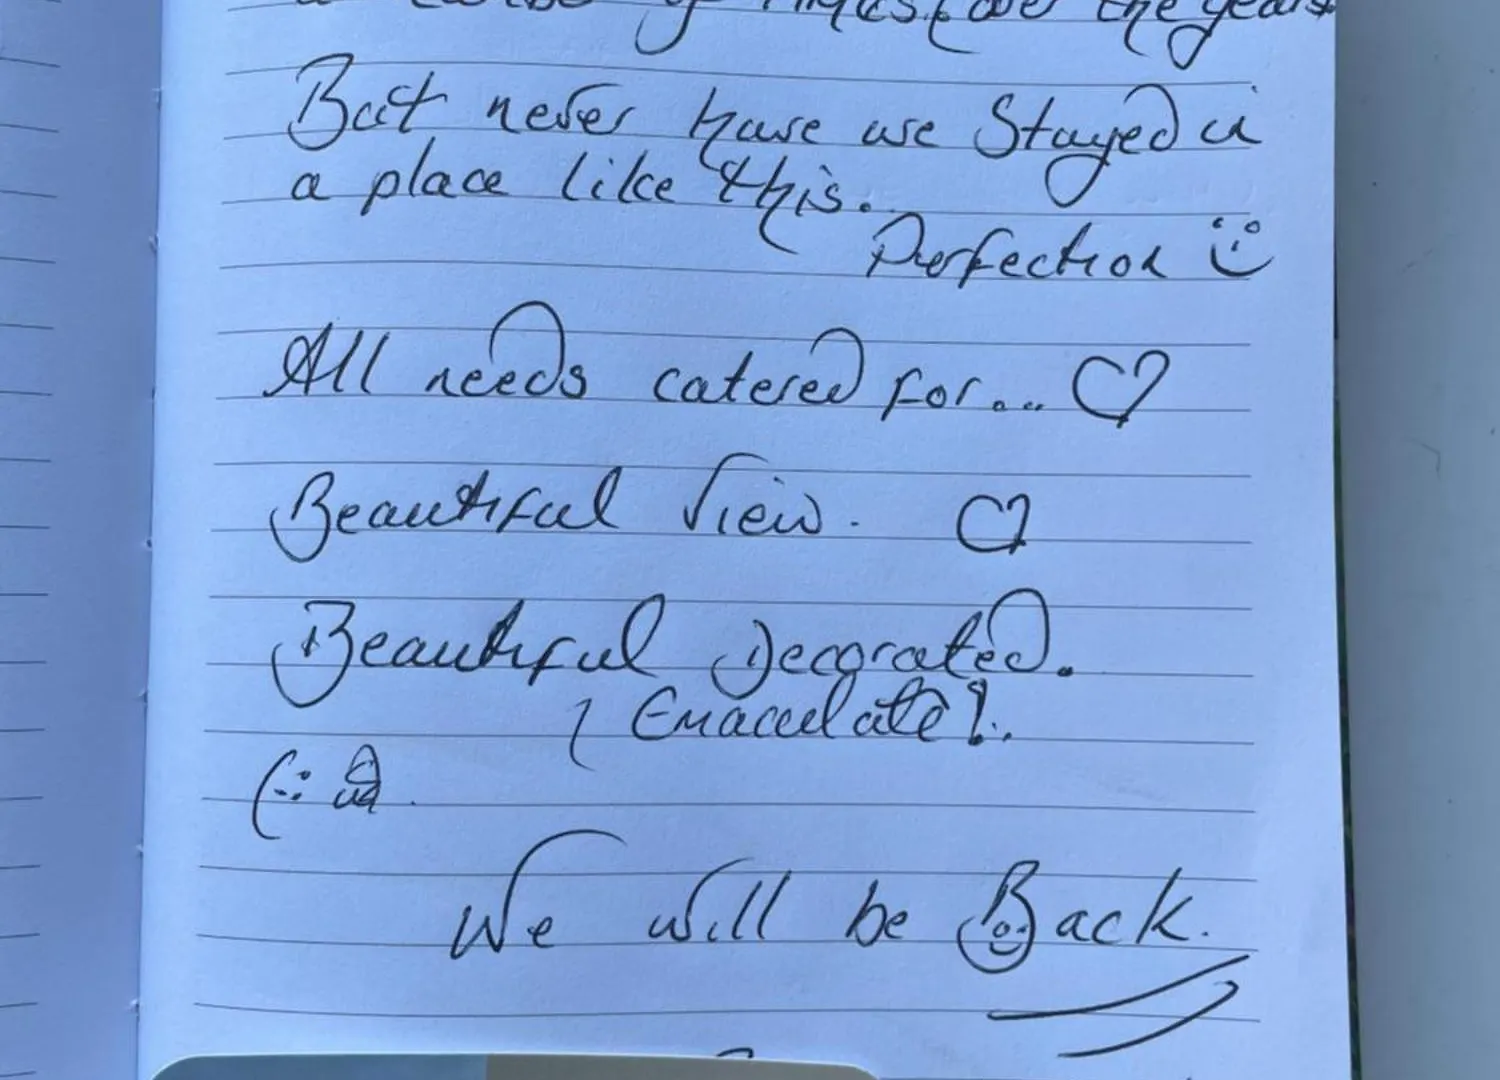 of times over the years
But never have we Stayed in
a place like this.
Perfection
All needs catered for...
Beautiful View.
Beautiful Decorated.
Emaculate!.
We will be Back.